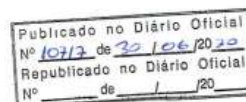 Publicado no Diário Oficial
Nº 10717 de 30 / 06 /20 20
Republicado no Diário Oficial
Nº ____ de ___/___/20__